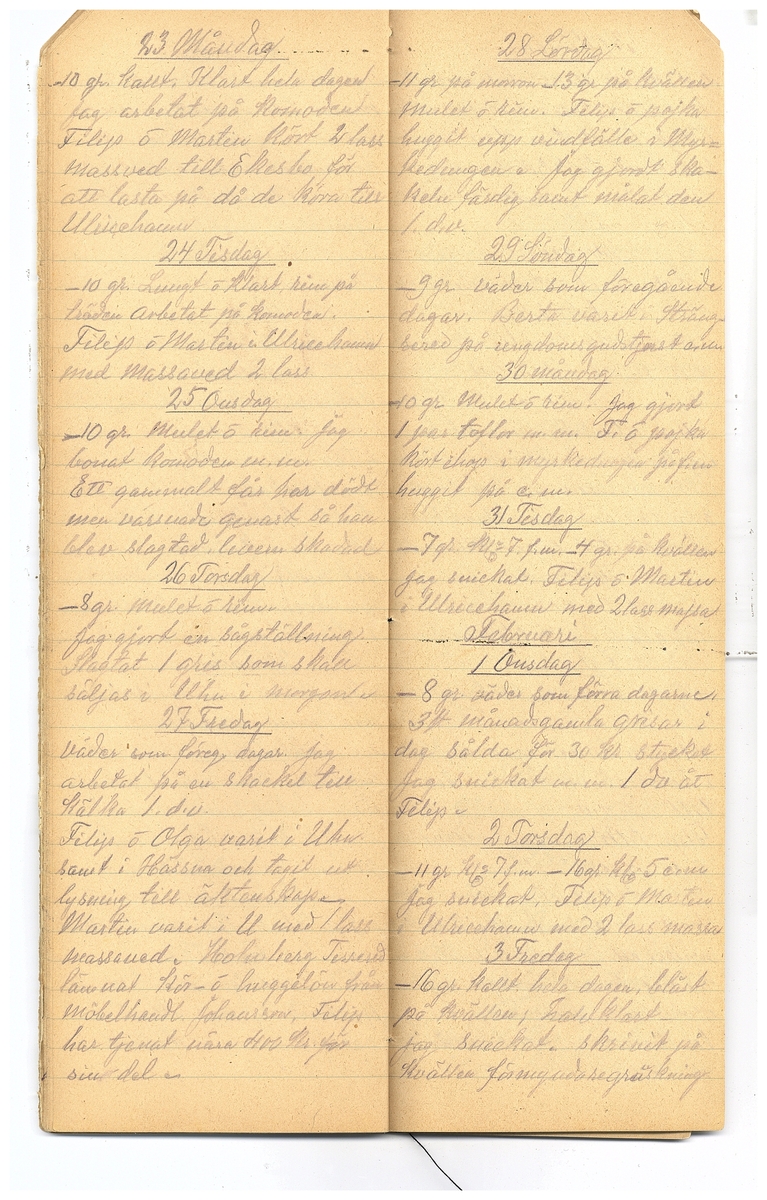 23 Måndag
-10 gr. Kallt. Klart hela dagen
jag arbetat på Komoden
Filip o Martin Kört 2 lass
massved till Ekesbo för
att lasta på då de köra till
Ulricehamn
24 Tisdag
-10 gr. Lungt o klart, rim på
träden arbetat på Komoden.
Filip o Martin i Ulricehamn
med massaved 2 lass
25 Onsdag
-10 gr. Mulet o rim. Jag
bonat Komoden m.m.
Ett gammalt får har dödt
men varsnade genast så han
blev slagtad.
26 Torsdag
-8 gr mulet o rim.
Jag gjort en sågställning
Slagtat 1 gris som skall
säljas i Uhn i morgon
27 Fredag
väder som föreg. dagar. jag
arbetat på en skackel till
Kälka 1. d.v.
Filip o Olga varit i Uhn
samt i Hössna och tagit ut
lysning till äktenskap
Martin varit i U med 1 lass
massaved. Holmberg
lämnat Kör- o huggelön från
möbelhandl. Johansson, Filip
har tjenat nära 400 Kr för
sin del
28 Lördag
-11 gr på morron -13 gr på kvällen
mulet o rim. Filip o pojka
huggit upp vindfälle i Myr=
kedungen. Jag gjordt ska-
keln färdig samt målat den
1. d.v.
29 Söndag
-9 gr. väder som föregående
dagar. Berta varit i Sträng-
sered på ungdomsgudstjenst
30 måndag
-10 gr Mulet o rim. Jag gjort
1 par toflor m.m. F. o pojka
Kört ihop i myrkedungen på f.m
huggit på e.m.
31 Tisdag
-7 gr. Kl 7 f.m. -4 gr. på kvällen
jag snickat. Filip o Martin
i Ulricehamn med 2 lass massa
Februari
1 Onsdag
-8 gr väder som förra dagarne.
3 st månadsgamla grisar i
dag sålda för 30 kr stycket
Jag snickat m.m. 1 do åt
Filip
2 Torsdag
-11 gr Kl 7 f.m. -16 gr. Kl 5 e.m
Jag snickat, Filip o Martin
i Ulricehamn med 2 lass massa
3 Fredag
-16 gr. Kallt hela dagen, blåst
på kvällen, halvklart
jag snickat. skrivit på
Kvällen förmyndaregranskning